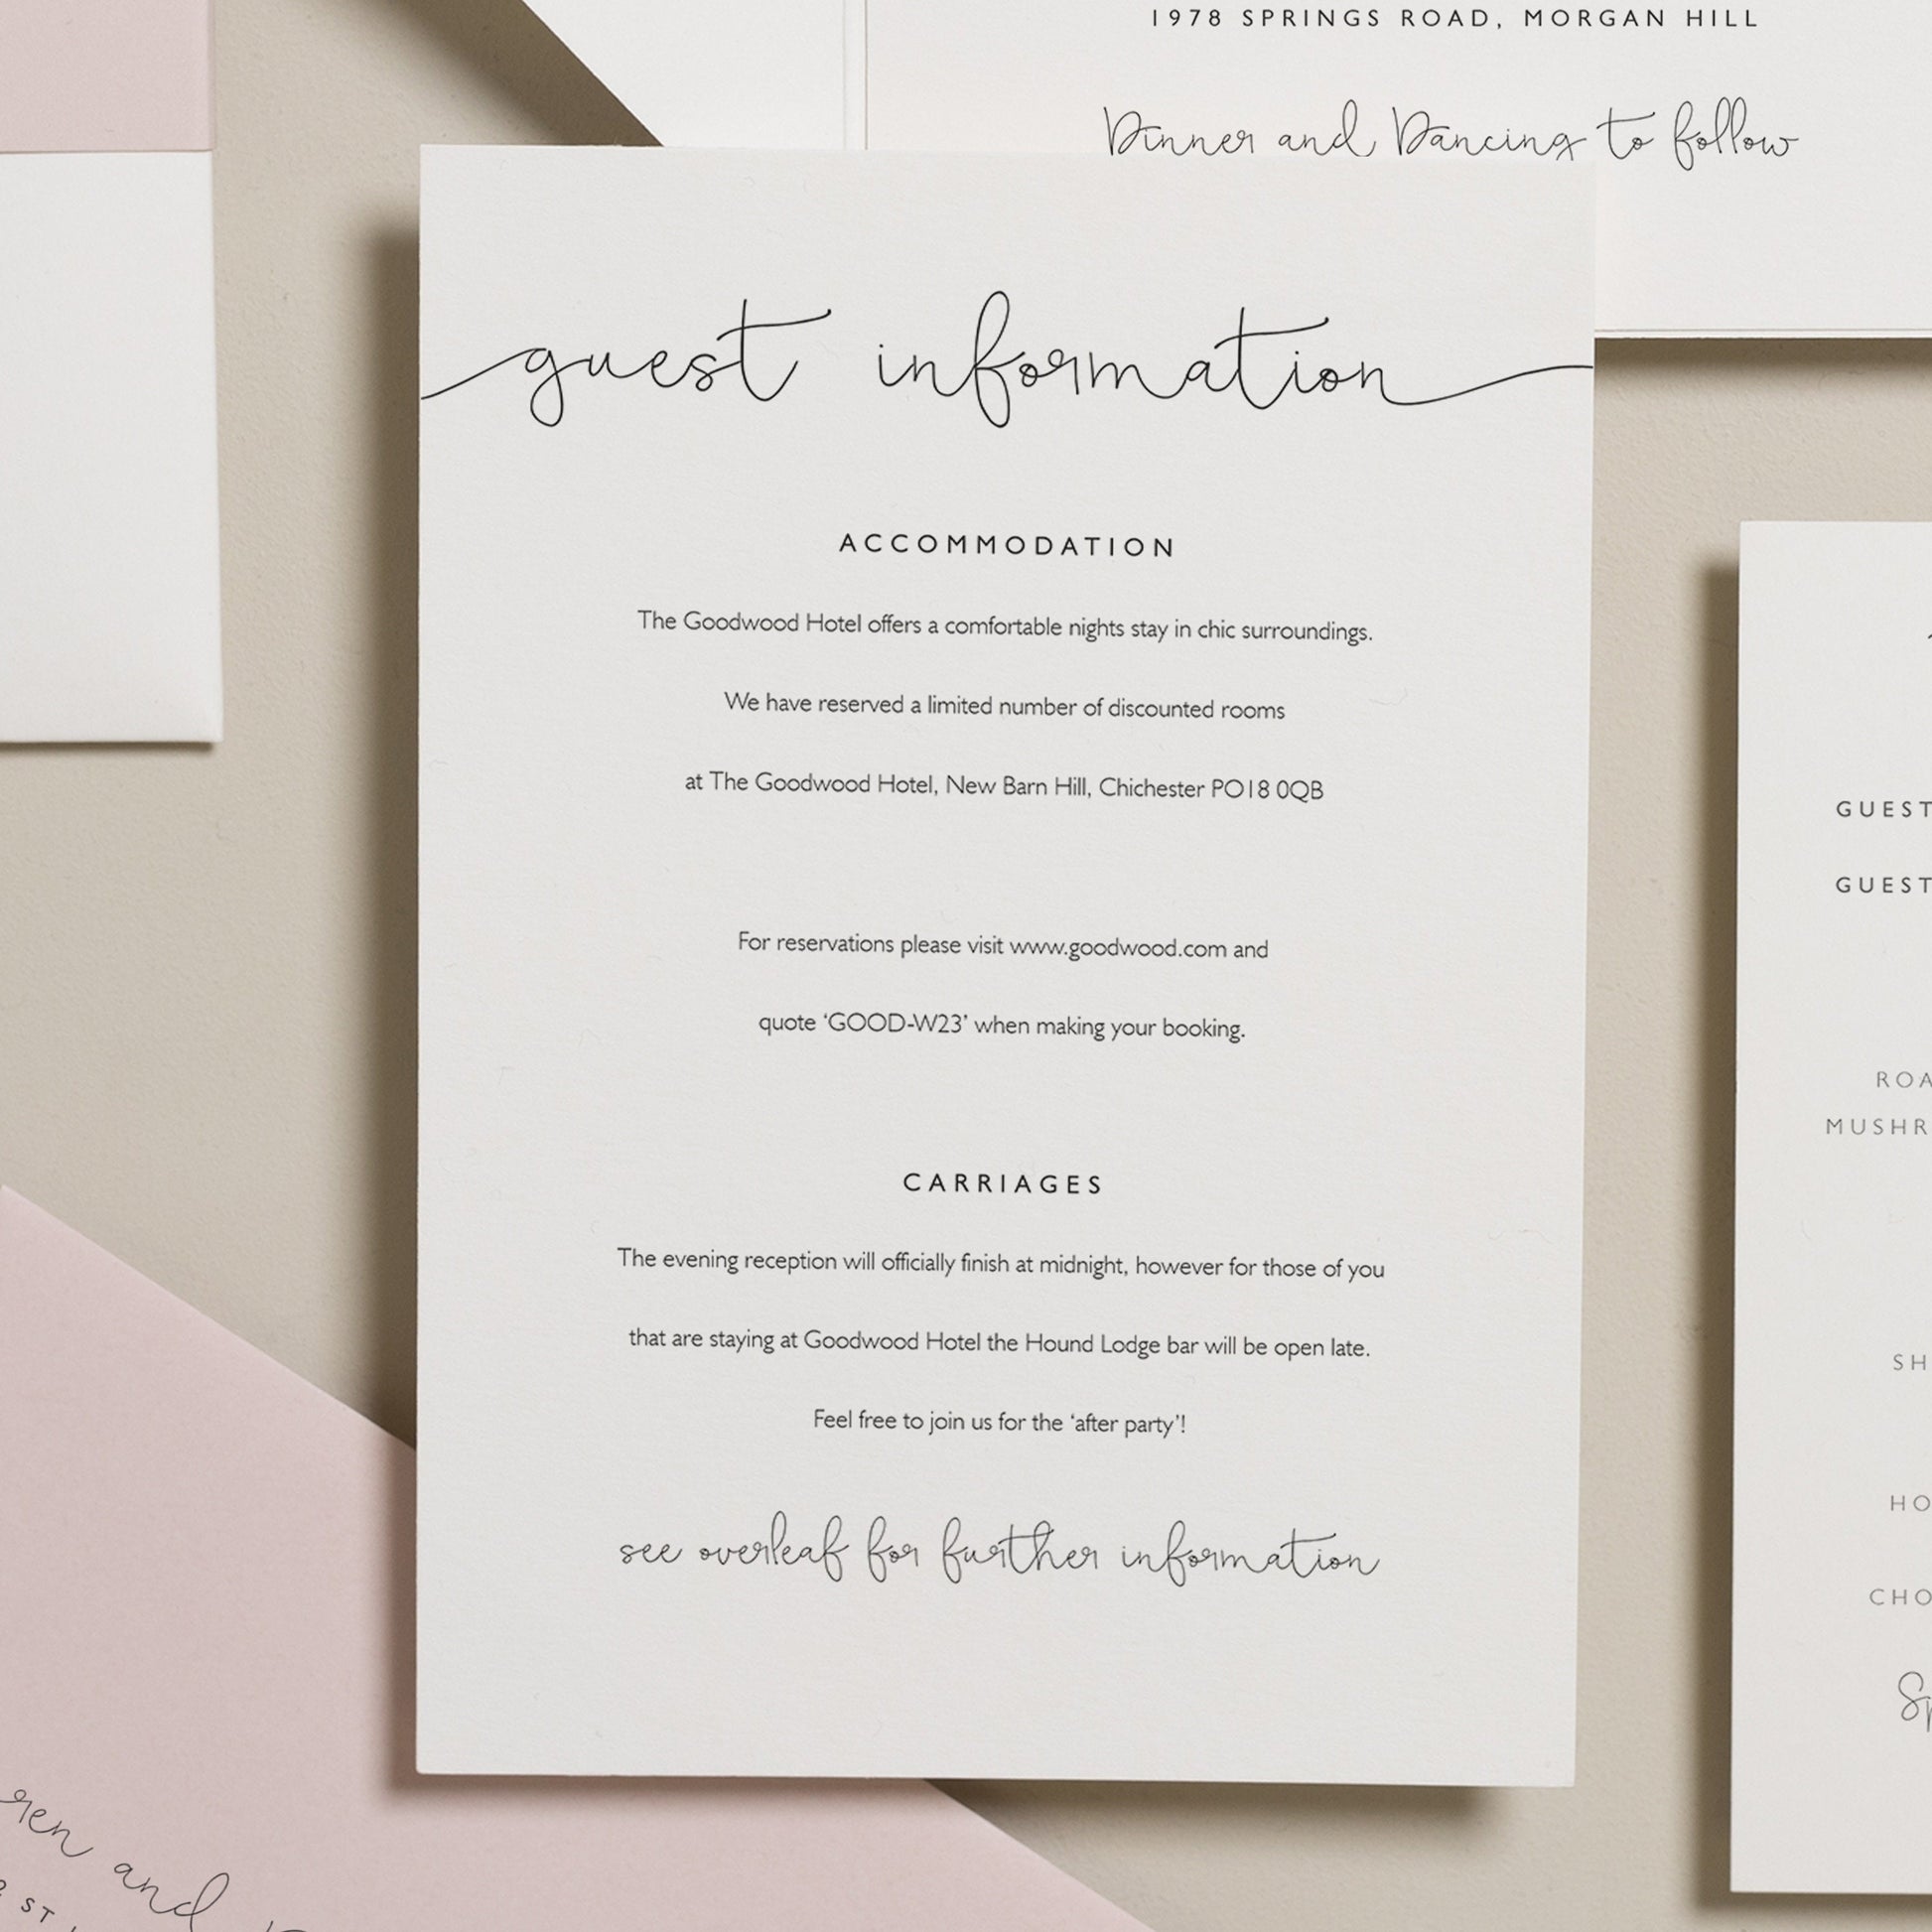 1978 SPRINGS ROAD, MORGAN HILL
Dinner and Dancing to follow
guest information
ACCOMMODATION
The Goodwood Hotel offers a comfortable nights stay in chic surroundings.
We have reserved a limited number of discounted rooms
at The Goodwood Hotel, New Barn Hill, Chichester PO18 0QB
For reservations please visit www.goodwood.com and
quote ‘GOOD-W23’ when making your booking.
CARRIAGES
The evening reception will officially finish at midnight, however for those of you
that are staying at Goodwood Hotel the Hound Lodge bar will be open late.
Feel free to join us for the ‘after party’!
see overleaf for further information
GUEST
GUEST
and
ST